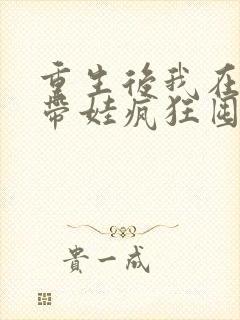 重生後我在
帶娃瘋狂囤
貴一成